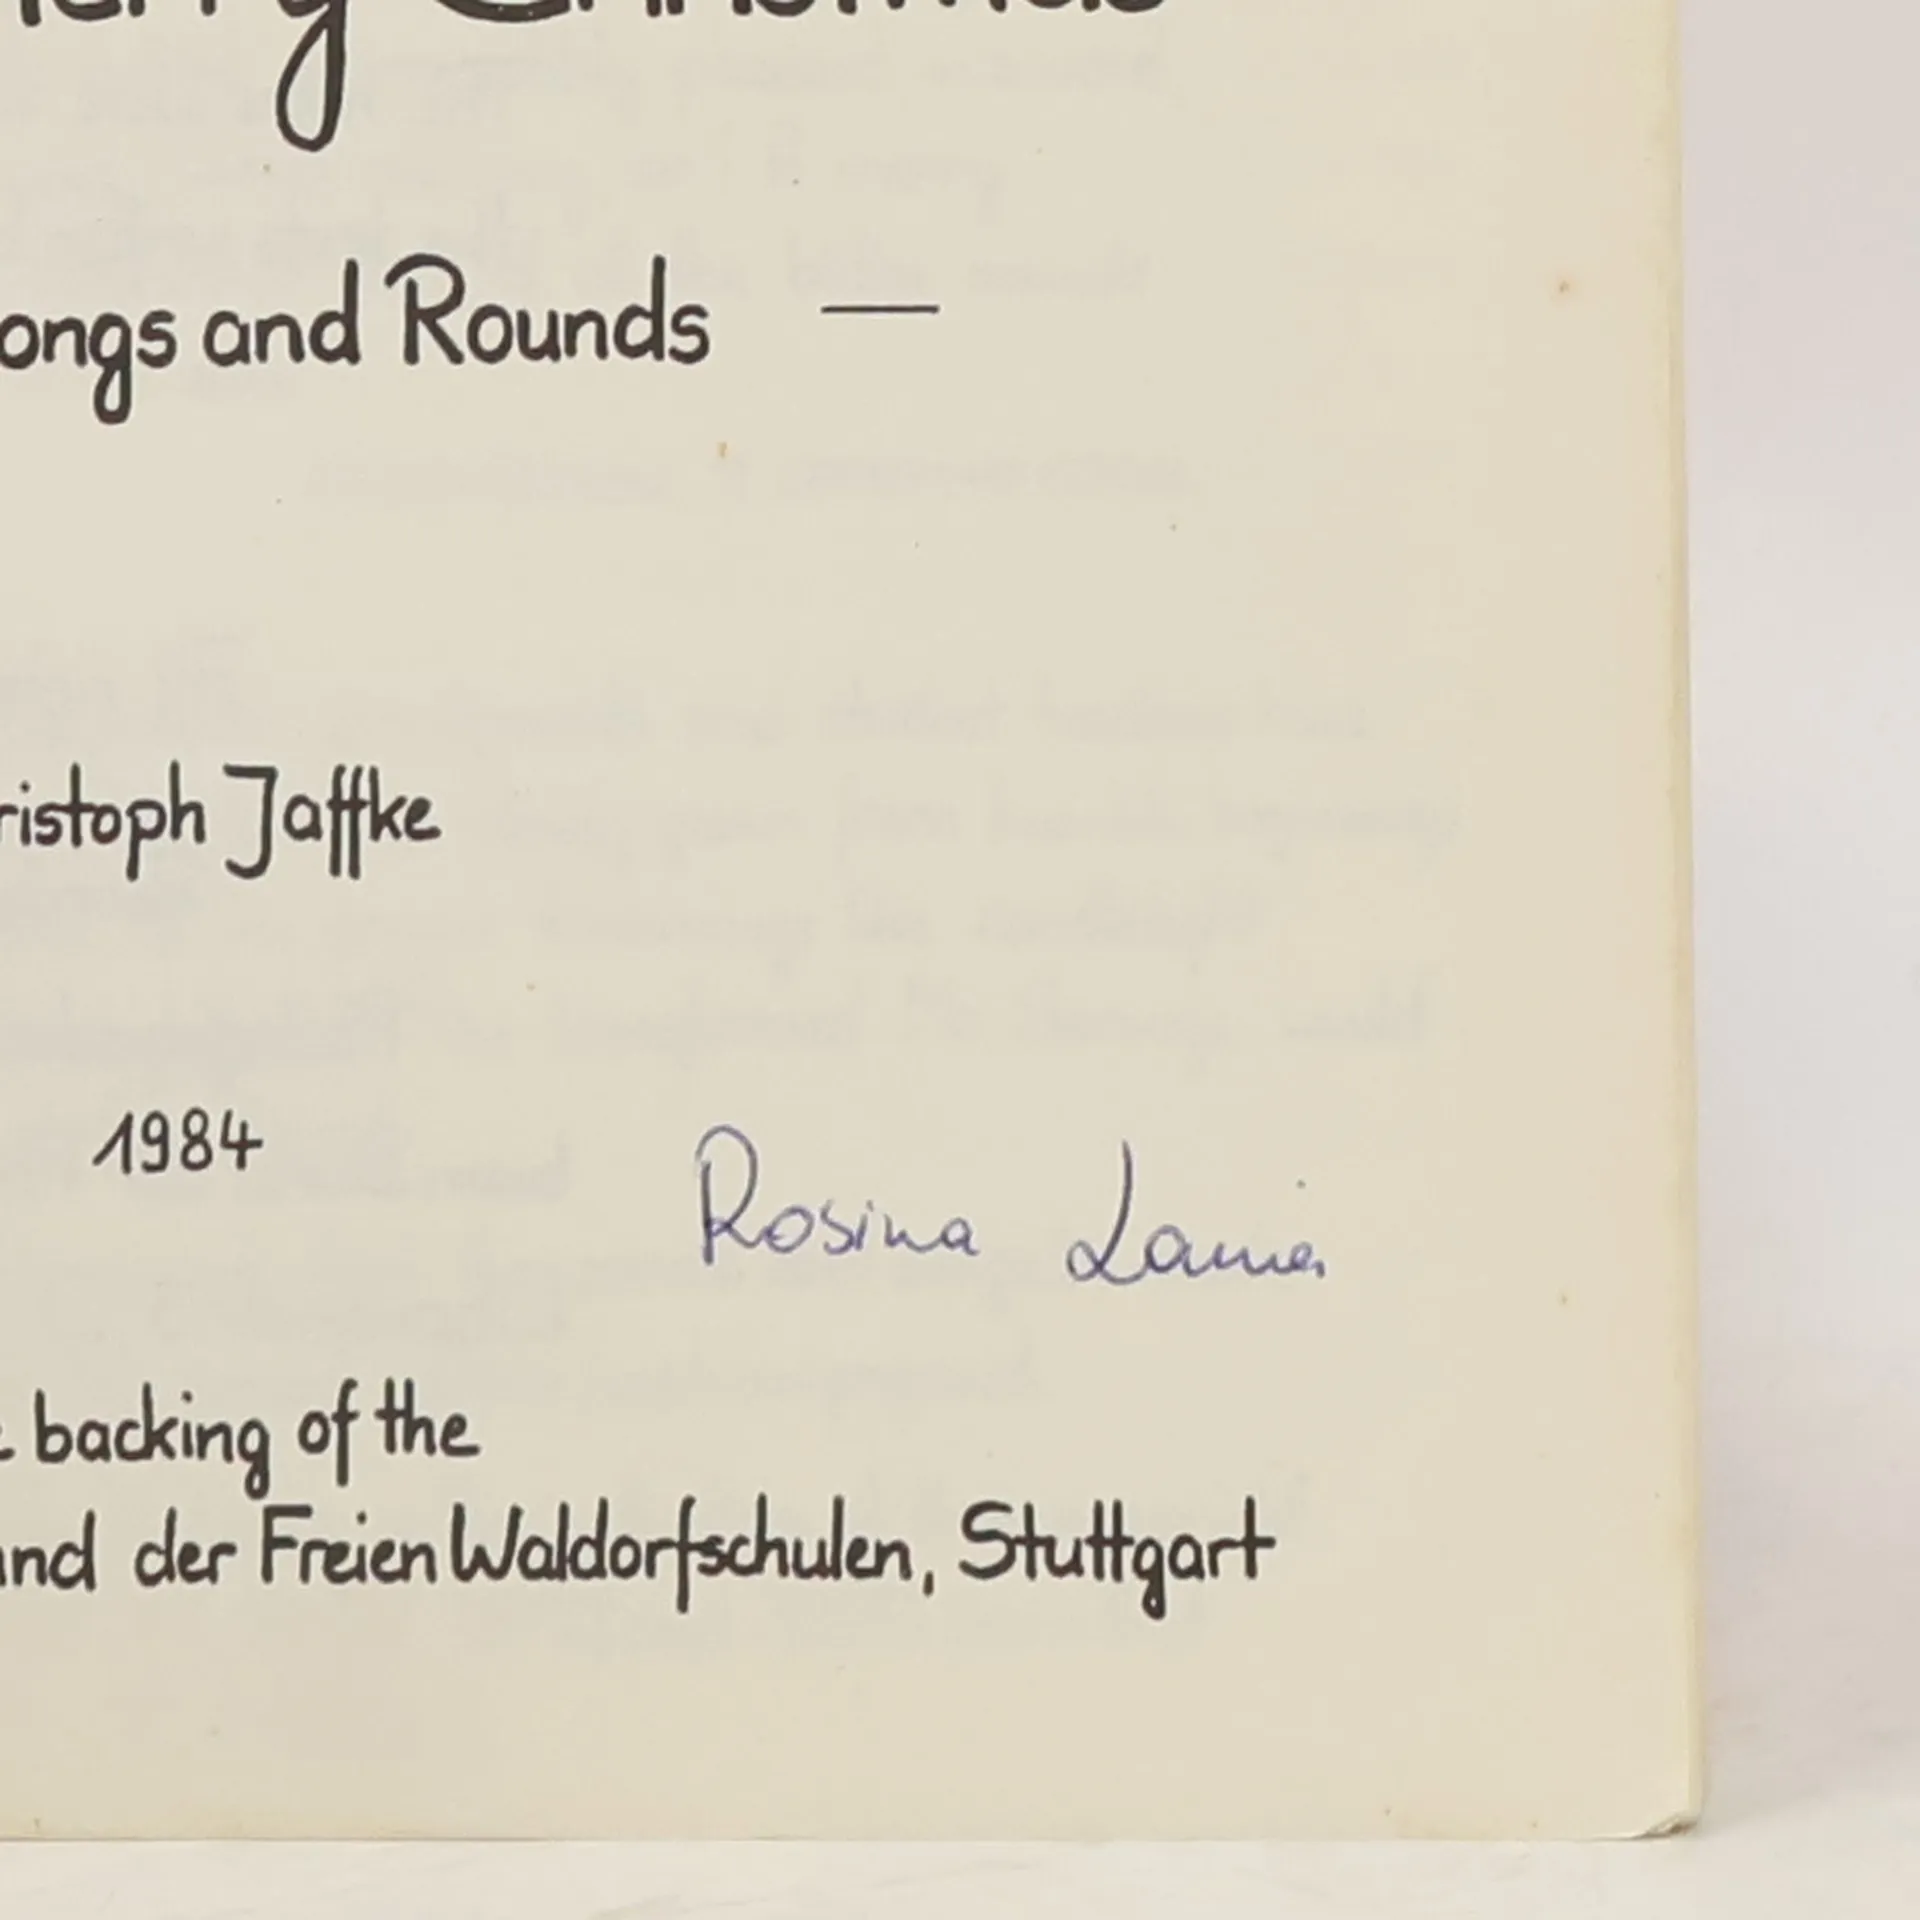 erry Christmas
ongs and Rounds —
ristoph Jaffke
1984
Rosina
backing of the
und der Freien Waldorfschulen, Stuttgart